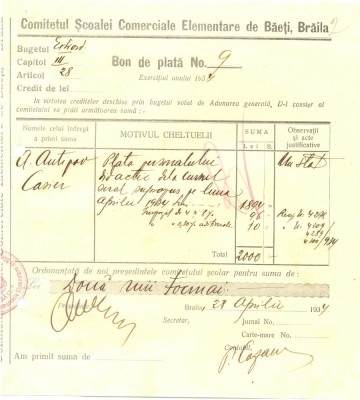 Comitetul Școalei Comerciale Elementare de Băeți, Brăila
2
Bugetul
Capitol III
Articol 28
Credit de lei
Bon de plată No. 9
Exercițiul anului 193
In virtutea creditelor deschise prin bugetul votat de Adunarea generală, D-l cassier al
comitetului va plăti următoarea sumă:
Numele celui îndrept
a primi suma
MOTIVUL CHELTUELII
SUMA
Lei B.
Observații
și acte
justificative
A. Antipov
Casier
Plata personalului
didactic dela cursul
seral suprapus, pe luna
Aprilie 1934
96
10
Un stat
Total 2000
Ordonanțată de noi președintele comitetului școlar pentru suma de:
Lei Două mii formai
Brăila 28 Aprilie 1934
Secretar,
Jurnal No.
Carte-mare No.
Contabil,
Am primit suma de